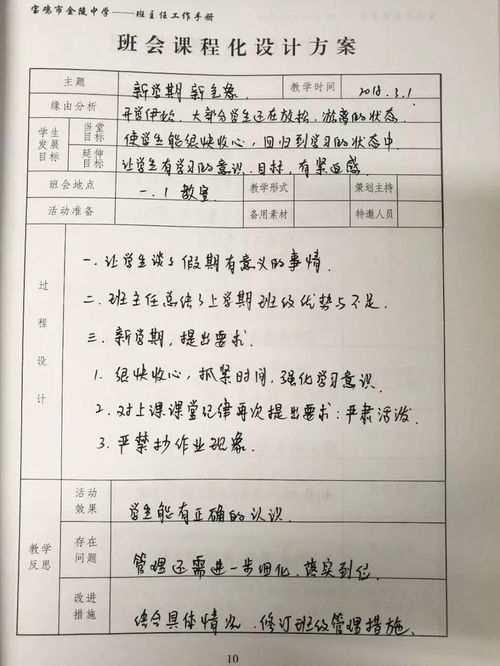 宝鸡市金陵中学——班主任工作手册
班会课程化设计方案
主题 新学期 新气象 教学时间 2018.3.1
缘由分析 开学伊始,大部分学生还在放松,游离的状态
学生发展目标 当堂目标 使学生能很快收心,回归到学习的状态中
延伸目标 让学生有学习的意识.目标,有紧迫感
班会地点 一.1 教室 教学形式 策划主持
活动准备 备用素材 特邀人员
过程设计
一.让学生谈谈假期有意义的事情.
二.班主任总结了上学期班级优势与不足.
三.新学期,提出要求.
1.很快收心,抓紧时间,强化学习意识.
2.对上课课堂纪律再次提出要求:严肃活泼.
3.严禁抄作业现象.
教学反思
活动效果 学生能有正确的认识.
存在问题 管理还需进一步细化、落实到位.
改进措施 结合具体情况,修订班级管理措施.
10